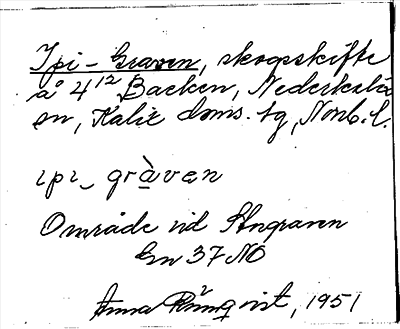 Ipi-Graven, skogsskifte
å 4¹² Backen, Nederkalix
sn, Kalix doms. tg, Norrb. l.
ɩpɩ_ gràven
Område vid Stngraven
Gn 37 NO
Anna Rönnqvist, 1951